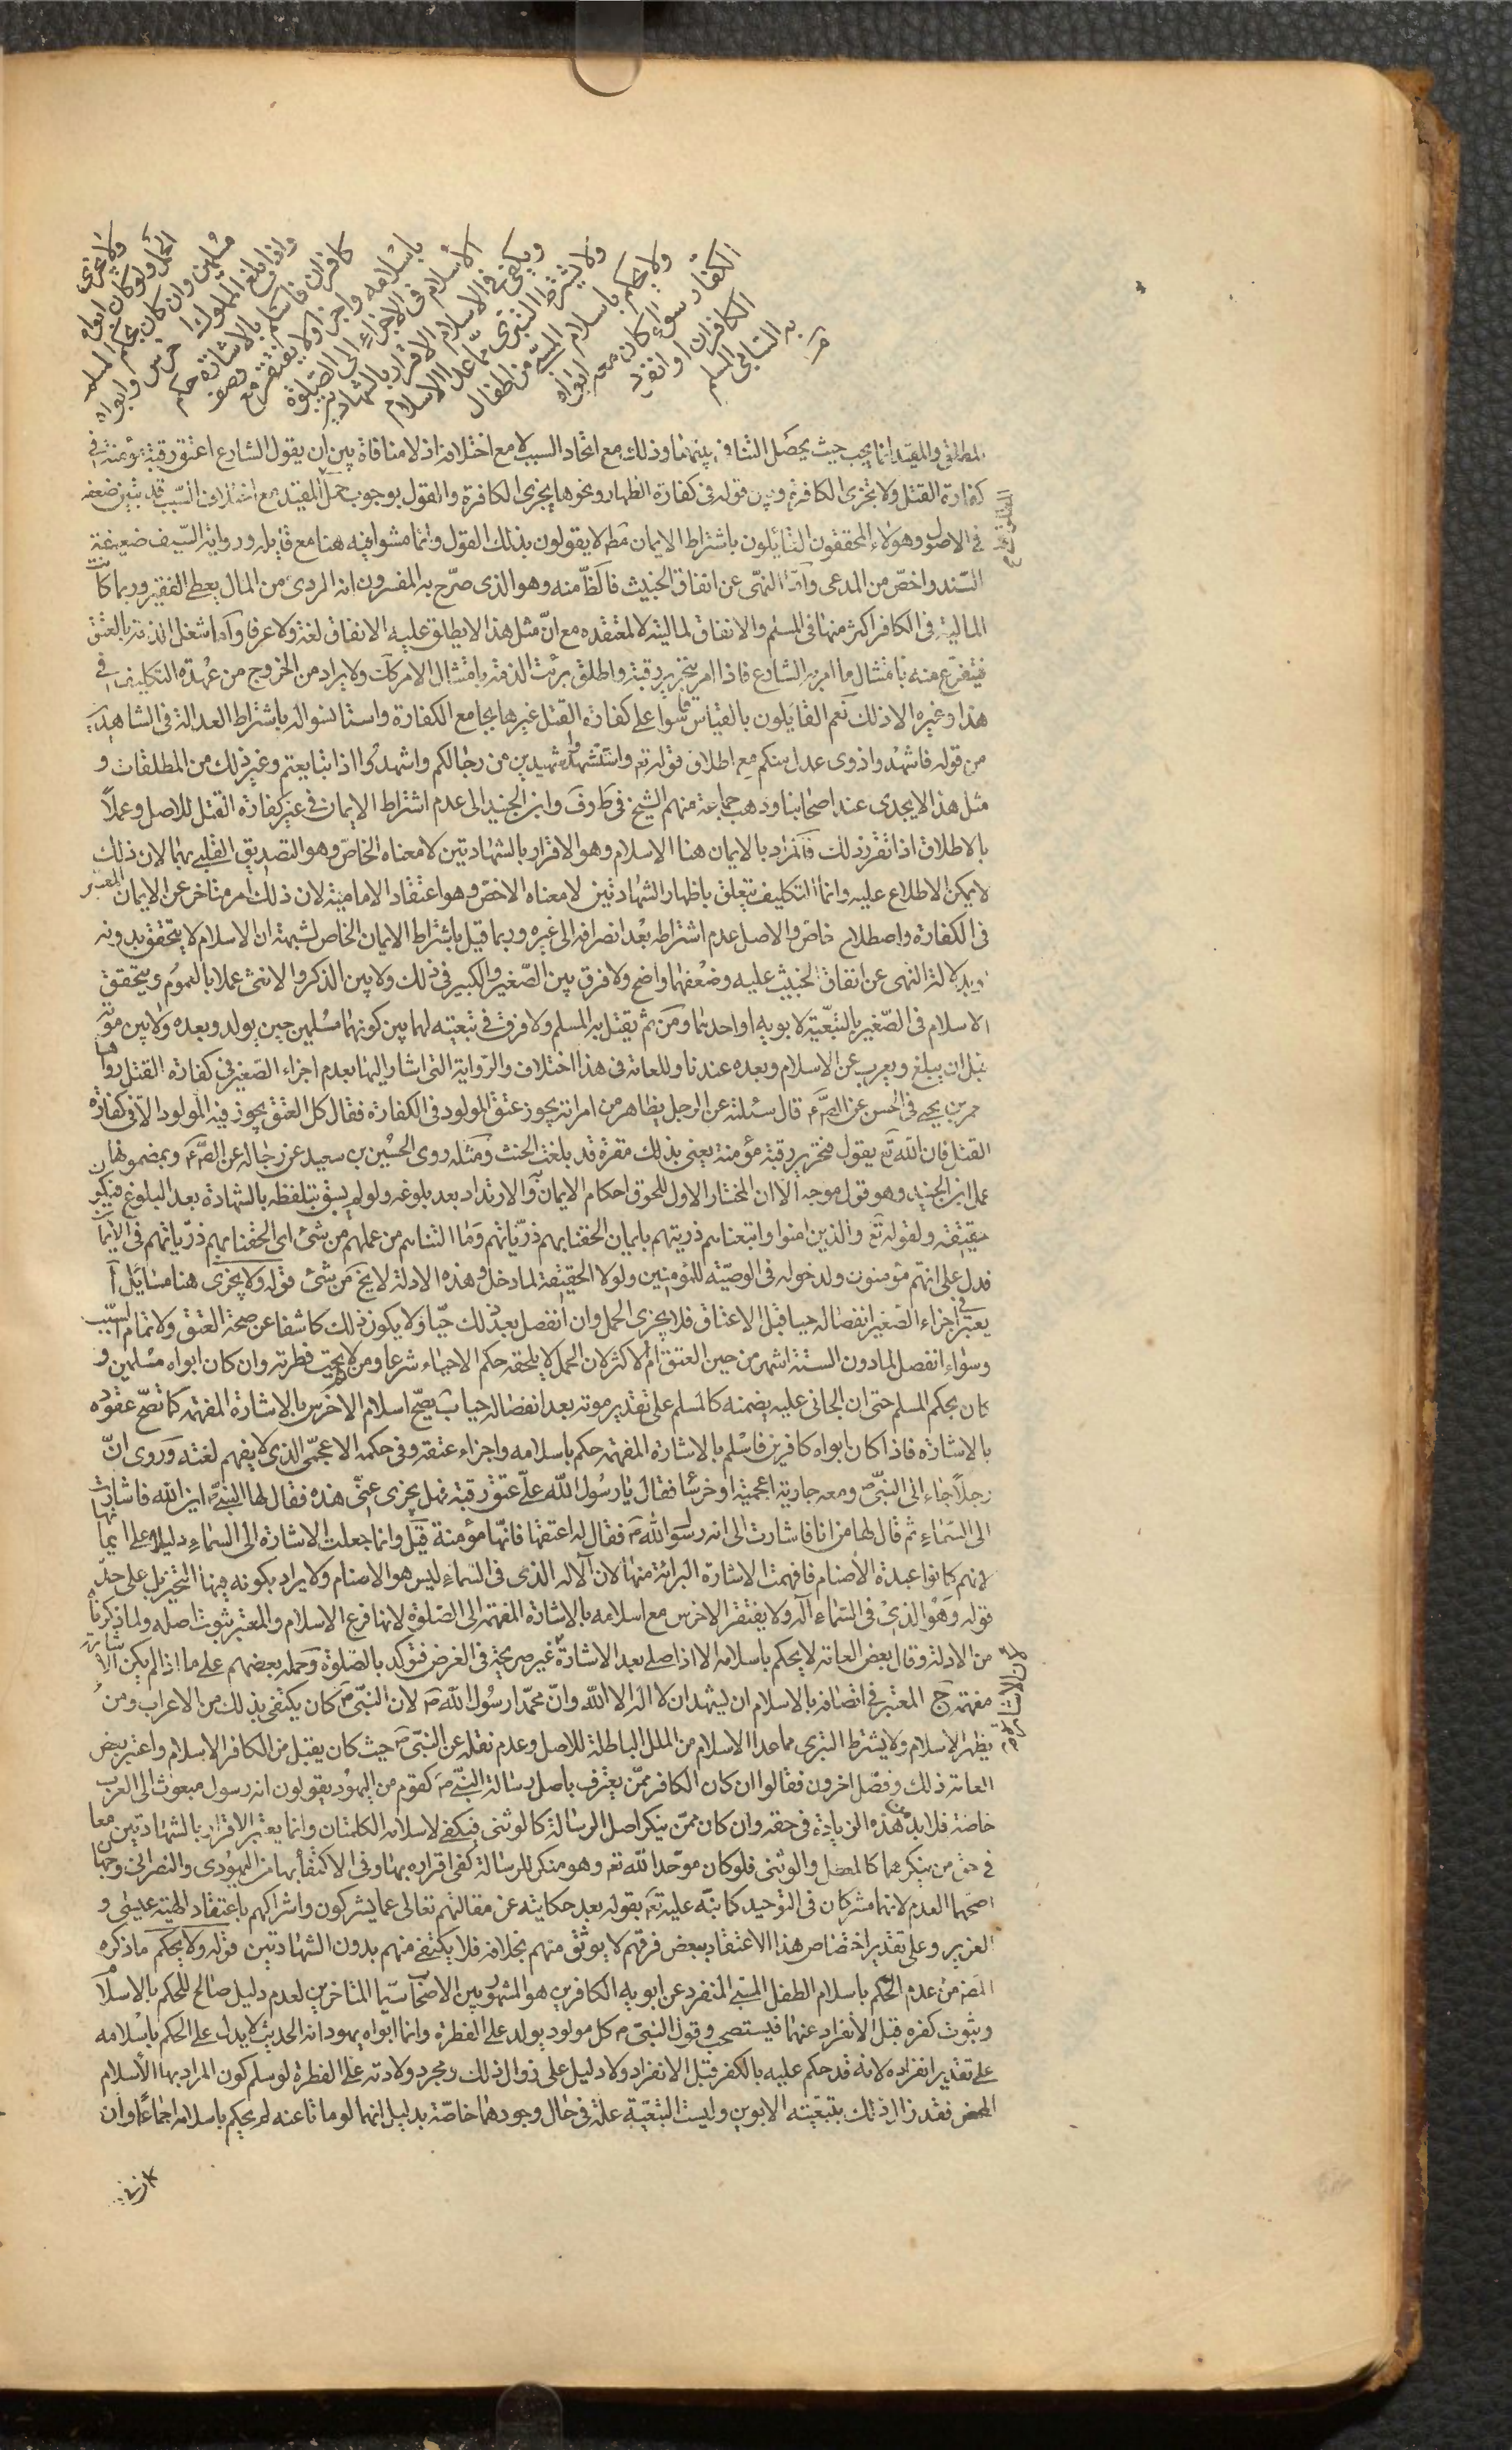 ولا يجزى
الحمل ولو كان ابواه
مسلمين وان كان بحكم المسلم
واذا بلغ المملوك اخرس وابواه
كافران فاسلم بالاشارة حكم
باسلامه واجزا ولا يفتقر مع وصف
الاسلام فى الاجزاء الى الصلوة
ويكفى فى الاسلام الاقرار بالشهادتين
ولا يشترط التبرى مما عدا الاسلام
ولا يحكم باسلام المسبى من اطفال
الكفار سواء كان معه ابواه
الكافران او انفرد
به السابى المسلم
المطلق والمقيد انما يجب حيث يحصل التنافى بينهما وذلك مع اتحاد السبب لا مع اختلافه اذ لا منافاة بين ان يقول الشارع اعتق رقبة مؤمنة فى
كفارة القتل ولا تجزى الكافرة وبين قوله فى كفارة الظهار ونحوها يجزى الكافرة والقول بوجوب حمل المقيد مع اختلاف السبب قد تبين ضعفه
فى الاصول وهؤلاء المحققون القائلون باشتراط الايمان مط لا يقولون بذلك القول وانما مشوا فيه هنا مع قايله ورواية السيف ضعيفة
السند واخص من المدعى وامّا النهى عن انفاق الخبيث فالظ منه وهو الذى صرّح به المفسرون انه الردى من المال يعطى الفقير وربما كانت
المالية فى الكافر اكثر منها فى المسلم والانفاق لماليته لا لمعتقده مع انّ مثل هذا لا يطلق عليه الانفاق لغة ولا عرفا وامّا شغل الذمة بالعتق
فيتفرّع منه بامتثال ما امر به الشارع فاذا امر بتحرير رقبة واطلق برئت الذمة بامتثال الامر كآت ولا يراد من الخروج من عهدة التكليف فى
هذا وغيره الا ذلك نعم القايلون بالقياس قاسوا على كفارة القتل غيرها بجامع الكفارة واستانسوا له باشتراط العدالة فى الشاهدين
من قوله فاشهدوا ذوى عدل منكم مع اطلاق قوله تع واستشهدوا شهيدين من رجالكم واشهدوا اذا تبايعتم وغير ذلك من المطلقات و
مثل هذا لا يجدى عند اصحابنا وذهب جماعة منهم الشيخ فى ط وف وابن الجنيد الى عدم اشتراط الايمان فى غير كفارة القتل للاصل وعملاً
بالاطلاق اذا تقرر ذلك فالمراد بالايمان هنا الاسلام وهو الاقرار بالشهادتين لا معناه الخاصّ وهو التصديق القلبى بهما لان ذلك
لا يمكن الاطلاع عليه وانما التكليف يتعلق باظهار الشهادتين لا معناه الاخصّ وهو اعتقاد الامامية لان ذلك امر متاخر عن الايمان المعتبر
فى الكفارة واصطلاح خاصّ والاصل عدم اشتراطه بعد انصرافه الى غيره وربما قيل باشتراط الايمان الخاص لشبهة ان الاسلام لا يتحقق بدونه
وبدلالة النهى عن انفاق الخبيث عليه وضعفهما واضح ولا فرق بين الصّغير والكبير فى ذلك ولا بين الذكر والانثى عملا بالعموم ويتحقق
الاسلام فى الصّغير بالتبعيّة لابويه او احدهما ومن ثم يقتل به المسلم ولا فرق فى تبعيته لهما بين كونهما مسلمين حين يولد وبعده ولا بين موته
قبل ان يبلغ ويعرب عن الاسلام وبعده عندنا وللعامة فى هذا اختلاف والرواية التى اشار اليها بعدم اجزاء الصّغير فى كفارة القتل رواها
معمر بن يحيى فى الحسن عن الصّ ع قال سئلته عن الرجل يظاهر من امراته يجوز عتق المولود فى الكفارة فقال كل العتق يجوز فيه المولود الا فى كفارة
القتل فان الله تع يقول فتحرير رقبة مؤمنة يعنى بذلك مقرة قد بلغت الحنث ومثله روى الحسين بن سعيد عن رجاله عن الصّ ع وبمضمونها
عمل ابن الجنيد وهو قول موجه الا ان المختار الاول للحوق احكام الايمان به والارتداد بعد بلوغه ولو لم يسبق بتلفظه بالشهادة بعد البلوغ فيكون
حقيقة ولقوله تع والذين امنوا واتبعناهم ذريتهم بايمان الحقنا بهم ذرّياتهم وما التناهم من عملهم من شئ اى الحقنا بهم ذرّياتهم فى الايمان
فدل على انهم مؤمنون ولدخوله فى الوصيّة للمؤمنين ولولا الحقيقة لما دخل وهذه الادلة لا يخ من شئ قوله ولا يجزى هنا مسايل آ
يعتبر فى اجزاء الصّغير انفصاله حيا قبل الاعتاق فلا يجزى الحمل وان انفصل بعد ذلك حيّا ولا يكون ذلك كاشفا عن صحة العتق ولا تمام السبب
وسواء انفصل لما دون الستة اشهر من حين العتق ام لاكثر لان الحمل لا يلحقه حكم الاحياء شرعا ومن ثم لا يجب فطرته وان كان ابواه مسلمين و
كان بحكم المسلم حتى ان الجانى عليه يضمنه كالمسلم على تقدير موته بعد انفصاله حيا ب يصحّ اسلام الاخرس بالاشارة المفهمة كما تصحّ عقوده
بالاشارة فاذا كان ابواه كافرين فاسلم بالاشارة المفهمة حكم باسلامه واجزاء عتقه وفى حكمه الاعجمى الذى لا يفهم لغته وروى انّ
رجلاً جاء الى النبىّ ص ومعه جارية اعجمية او خرسا فقال يا رسول الله علىّ عتق رقبة فهل يجزى عنّى هذه فقال لها النبىّ ص اين الله فاشارت
الى السماء ثم قال لها من انا فاشارت الى انه رسول الله ص فقال له اعتقها فانّها مؤمنة قيل وانما جعلت الاشارة الى السماء دليلا على ايمانها
لانهم كانوا عبدة الاصنام فافهمت الاشارة البرائة منها لان الاله الذى فى السّماء ليس هو الاصنام ولا يراد بكونه فيها التحيز بل على حدّ
قوله وهو الذى فى السّماء اله ولا يفتقر الاخرس مع اسلامه بالاشارة المفهمة الى الصّلوة لانها فرع الاسلام والمعتبر ثبوت اصله ولما ذكرناه
من الادلة وقال بعض العامة لا يحكم باسلامه الا اذا صلى بعد الاشارة لان الاشارة غير صريحة فى الغرض فتؤكد بالصّلوة وحمله بعضهم على ما اذا لم يكن الاشارة
مفهمة ج المعتبر فى اتصافه بالاسلام ان يشهد ان لا اله الا الله وانّ محمّدا رسول الله ص لان النبىّ ص كان يكتفى بذلك من الاعراب ومن
يظهر الاسلام ولا يشترط التبرى مما عدا الاسلام من الملل الباطلة للاصل وعدم نقله عن النبىّ ص حيث كان يقبل من الكافر الاسلام واعتبر بعض
العامة ذلك وفصّل اخرون فقالوا ان كان الكافر ممّن يعترف باصل رسالة النبىّ ص كقوم من اليهود يقولون انه رسول مبعوث الى العرب
خاصة فلا بدّ من هذه الزيادة فى حقه وان كان ممّن ينكر اصل الرسالة كالوثنى فيكفى لاسلامه الكلمتان وانما يعتبر الاقرار بالشهادتين معا
فى حق من ينكرهما كالمعطل والوثنى فلو كان موحّدا لله تع وهو منكر للرسالة كفى اقراره بها وفى الاكتفاء بها من اليهودى والنصرانى وجهان
اصحّهما العدم لانهما مشركان فى التوحيد كما نبّه عليه تع بقوله بعد حكايته عن مقالتهم تعالى عما يشركون واشراكهم باعتقاد الهية عيسى و
العزير وعلى تقدير اختصاص هذا الاعتقاد ببعض فرقهم لا يوثق منهم بخلافه فلا يكتفى منهم بدون الشهادتين قوله ولا يحكم ما ذكره
المص من عدم الحكم باسلام الطفل المسبى المنفرد عن ابويه الكافرين هو المشهور بين الاصحاب سيّما المتاخرين لعدم دليل صالح للحكم بالاسلام
وثبوت كفره قبل الانفراد عنهما فيستصحب وقول النبىّ ص كل مولود يولد على الفطرة وانما ابواه يهودانه الحديث لا يدل على الحكم باسلامه
على تقدير انفراده لانه قد حكم عليه بالكفر قبل الانفراد ولا دليل على زوال ذلك ومجرد ولادته على الفطرة لو سلم كون المراد بها الاسلام
المحض فقد زال ذلك بتبعيته الابوين وليست التبعية علة فى حال وجودهما خاصّة بدليل انهما لو ماتا عنه لم يحكم باسلامه اجماعًا وان